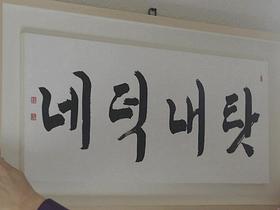 네덕내탓